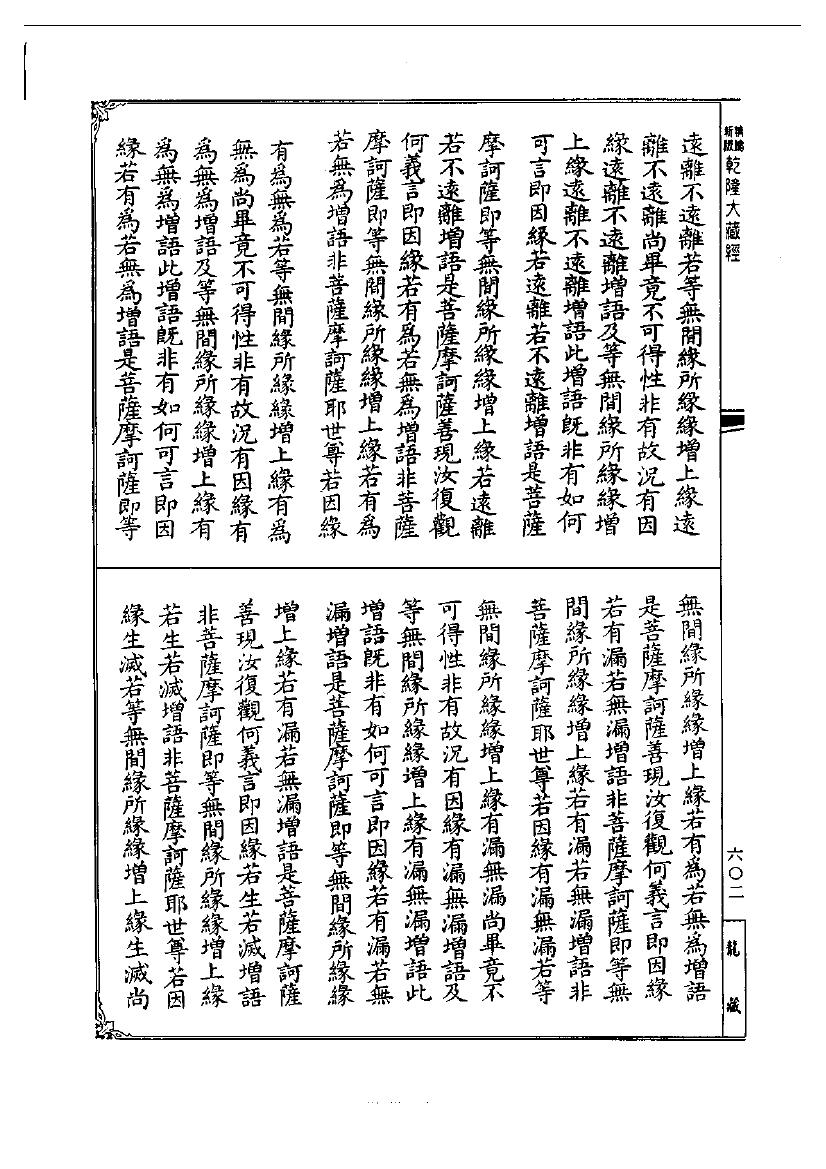 新版
乾隆大藏經
遠離不遠離若等無間緣所緣緣增上緣遠
離不遠離尚畢竟不可得性非有故況有因
緣遠離不遠離增語及等無間緣所緣緣增
上緣遠離不遠離增語此增語既非有如何
可言即因緣若遠離若不遠離增語是菩薩
摩訶薩即等無間緣所緣緣增上緣若遠離
若不遠離增語是菩薩摩訶薩善現汝復觀
何義言即因緣若有為若無為增語非菩薩
摩訶薩即等無間緣所緣緣增上緣若有為
若無為增語非菩薩摩訶薩耶世尊若因緣
有為無為若等無間緣所緣緣增上緣有為
無為尚畢竟不可得性非有故況有因緣有
為無為增語及等無間緣所緣緣增上緣有
為無為增語此增語既非有如何可言即因
緣若有為若無為增語是菩薩摩訶薩即等
無間緣所緣緣增上緣若有為若無為增語
是菩薩摩訶薩善現汝復觀何義言即因緣
若有漏若無漏增語非菩薩摩訶薩即等無
間緣所緣緣增上緣若有漏若無漏增語非
菩薩摩訶薩耶世尊若因緣有漏無漏若等
無間緣所緣緣增上緣有漏無漏尚畢竟不
可得性非有故況有因緣有漏無漏增語及
等無間緣所緣緣增上緣有漏無漏增語此
增語既非有如何可言即因緣若有漏若無
漏增語是菩薩摩訶薩即等無間緣所緣緣
增上緣若有漏若無漏增語是菩薩摩訶薩
善現汝復觀何義言即因緣若生若滅增語
非菩薩摩訶薩即等無間緣所緣緣增上緣
若生若滅增語非菩薩摩訶薩耶世尊若因
緣生滅若等無間緣所緣緣增上緣生滅尚
六〇二
龍藏